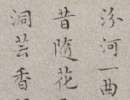 汾河一曲
昔随花
洞芸香